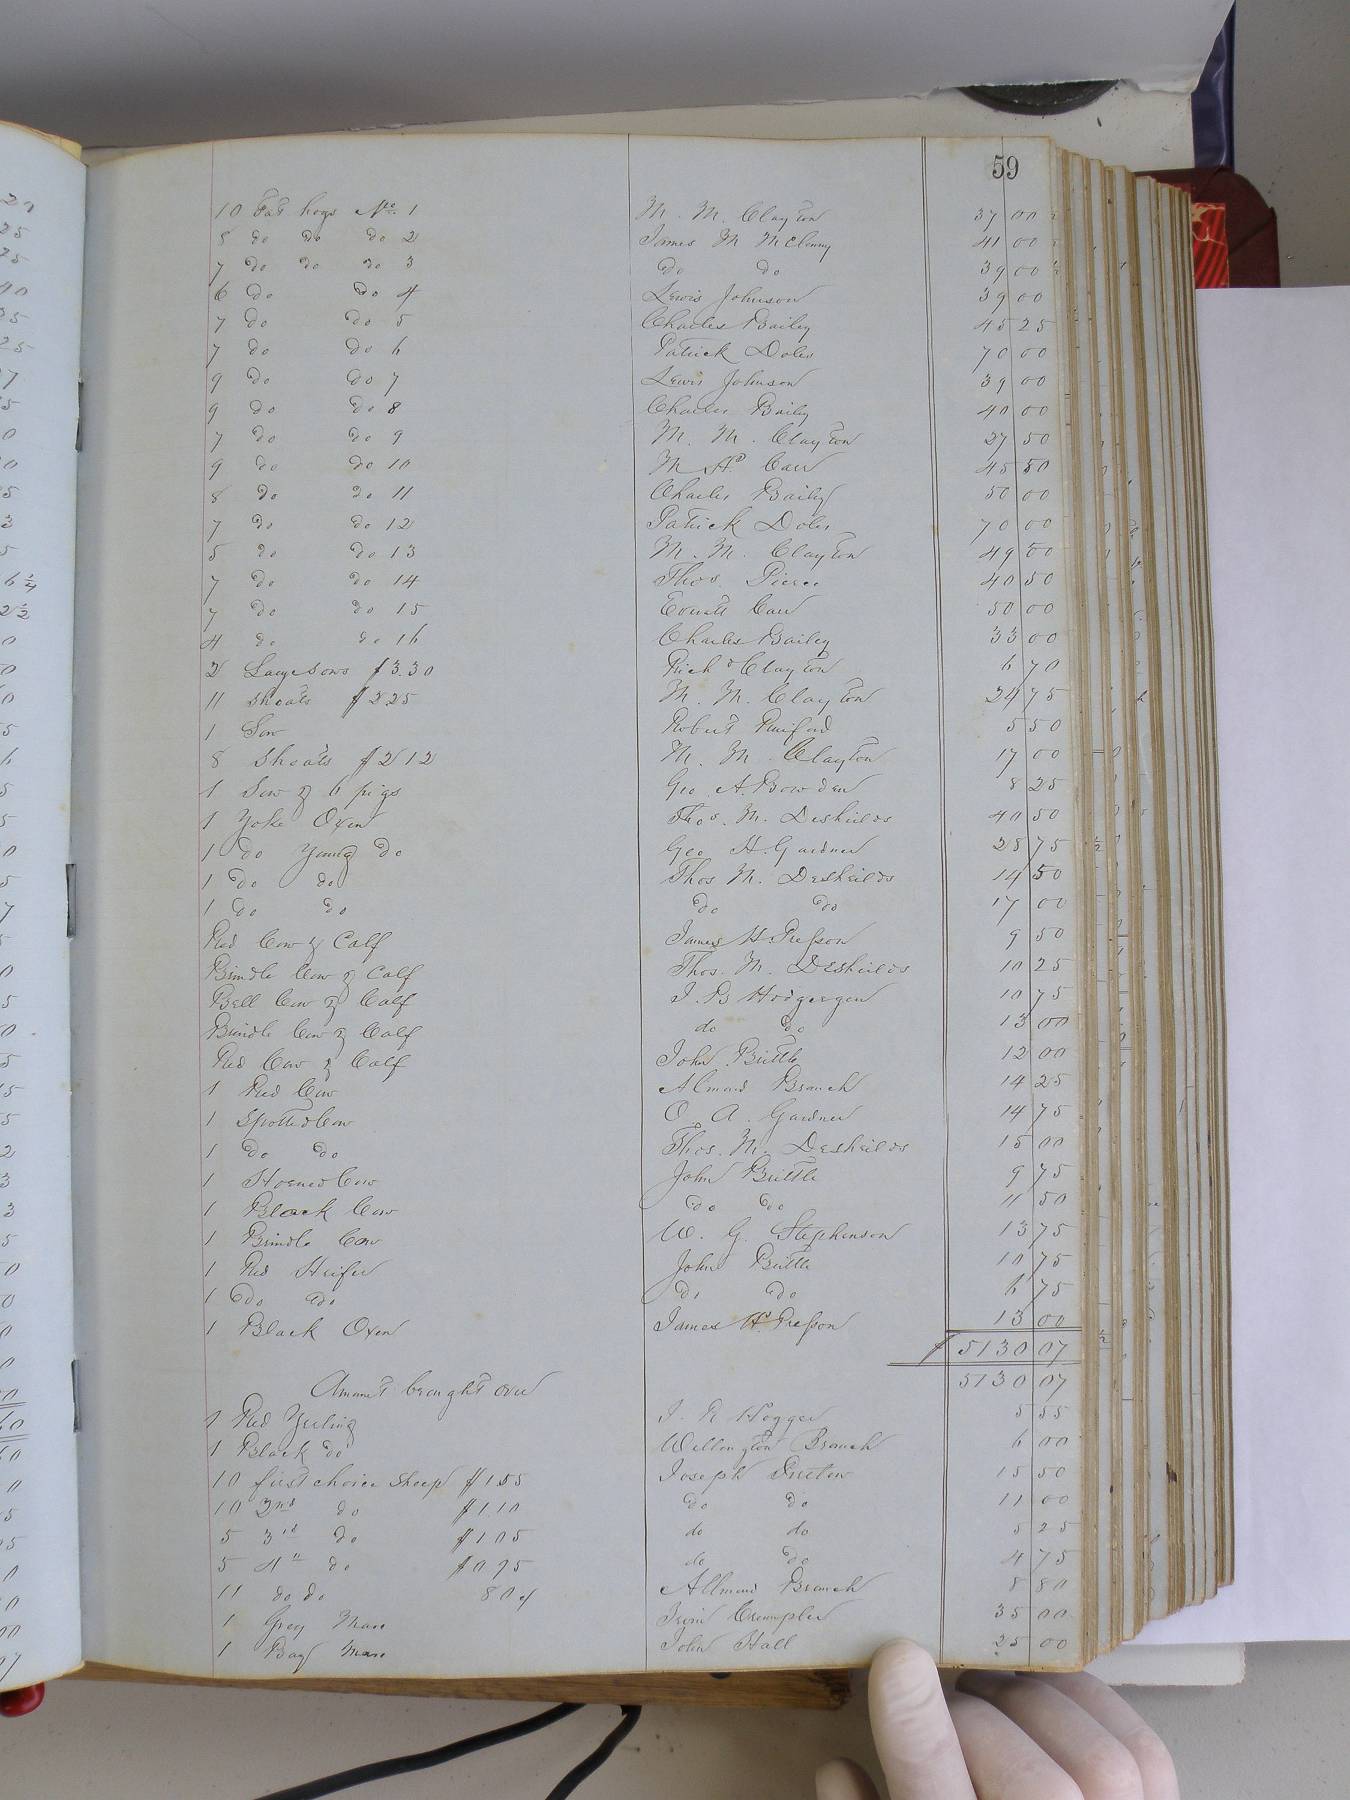 59
10 Fat hogs No. 1 M. M. Clayton 37 00
8 do do do 2 James M McClenny 41 00
7 do do do 3 do do 39 00
6 do do 4 Lewis Johnson 39 00
7 do do 5 Charles Bailey 45 25
7 do do 6 Patrick Doles 70 00
9 do do 7 Lewis Johnson 39 00
9 do do 8 Charles Bailey 40 00
7 do do 9 M. M. Clayton 27 50
9 do do 10 Carr 45 50
8 do do 11 Charles Bailey 50 00
7 do do 12 Patrick Doles 70 00
5 do do 13 M. M. Clayton 49 00
7 do do 14 Thos. Pierce 40 50
7 do do 15 Carr 50 00
4 do do 16 Charles Bailey 33 00
2 Large Sows $3.30 Richd Clayton 6 70
11 shoats $2 25 M. M. Clayton 24 75
1 Sow Robert 5 50
8 Shoats $2 12 M. M. Clayton 17 00
1 Sow & 6 pigs Geo. A. Bowden 8 25
1 Yoke Oxen Thos. M. Desheilds 40 50
1 do Young do Geo H. Gardner 25 75
1 do do Thos M. Desheilds 14 50
1 do do do do 17 00
Red Cow & Calf James H. Presson 9 50
Brindle Cow & Calf Thos. M. Desheilds 10 25
Bell Cow & Calf J. B 10 75
Brindle Cow & Calf do do 13 00
Red Cow & Calf John Brittle 12 00
1 Red Cow Almond Branch 14 25
1 Spotted Cow O. A Gardner 14 75
1 do do Thos. M. Desheilds 15 00
1 Horned Cow John Brittle 9 75
1 Black Cow do do 11 50
1 Brindle Cow W. G. Stephenson 13 75
1 Red Heifer John Brittle 10 75
1 do do do do 6 75
1 Black Oxen James H. Presson 13 00
$ 5130 07
Amount brought over 5130 07
1 Red Yerling J. R 5 55
1 Black do Wellington Branch 6 00
10 first choice sheep $1.55 Joseph 15 50
10 2nd do $1.10 do do 11 00
5 3rd do $1 05 do do 5 25
5 4th do $0 95 do do 4 75
11 do do 80 c Allmond Branch 8 80
1 Grey Mare Irvin Crumpler 35 00
1 Bay Mare John Hall 25 00